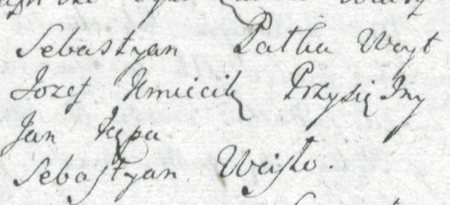 Sebastyan Patka Woyt
Jozef Kmiecik Przysiężny
Jan Kępa
Sebastyan Weisło.